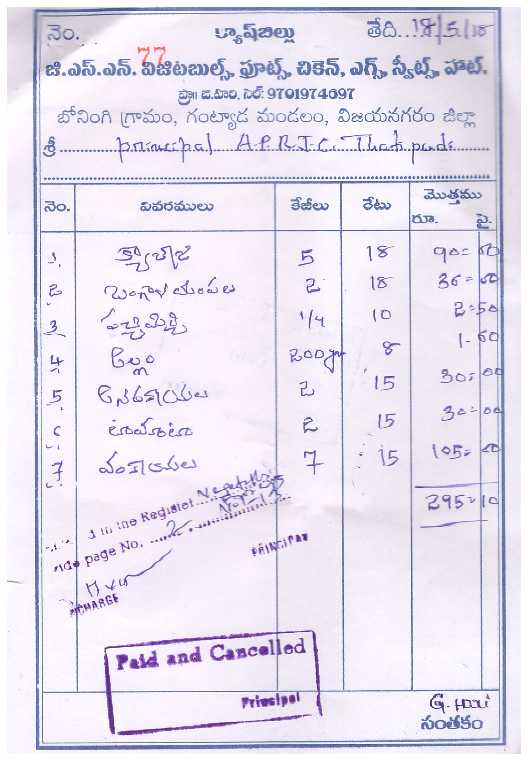 నెం. 77 క్యాష్‌బిల్లు తేది..18/5/18
జి.ఎస్.ఎన్. విజిటబుల్స్, ఫూట్స్, చికెన్, ఎగ్స్, స్వీట్స్, హాట్.
ప్రొ॥ జి.హరి, సెల్: 9701974697
బోనింగి గ్రామం, గంట్యాడ మండలం, విజయనగరం జిల్లా
శ్రీ principal A.P.R.J.C. Thatipudi
నెం. వివరములు కేజీలు రేటు మొత్తము
రూ. పై.
1. క్యాబేజి 5 18 90=00
2 బంగాళ దుంపలు 2 18 36=00
3 పచ్చిమిర్చి 1/4 10 2=50
4 అల్లం 200gm 8 1-60
5 ఆనపకాయలు 2 15 30=00
6 టామాటా 2 15 30=00
7 వంకాయలు 7 15 105=00
295=10
d in the Register
Vide page No. 2
PRINCIPAL
INCHARGE
Paid and Cancelled
Principal
G. Hari
సంతకం